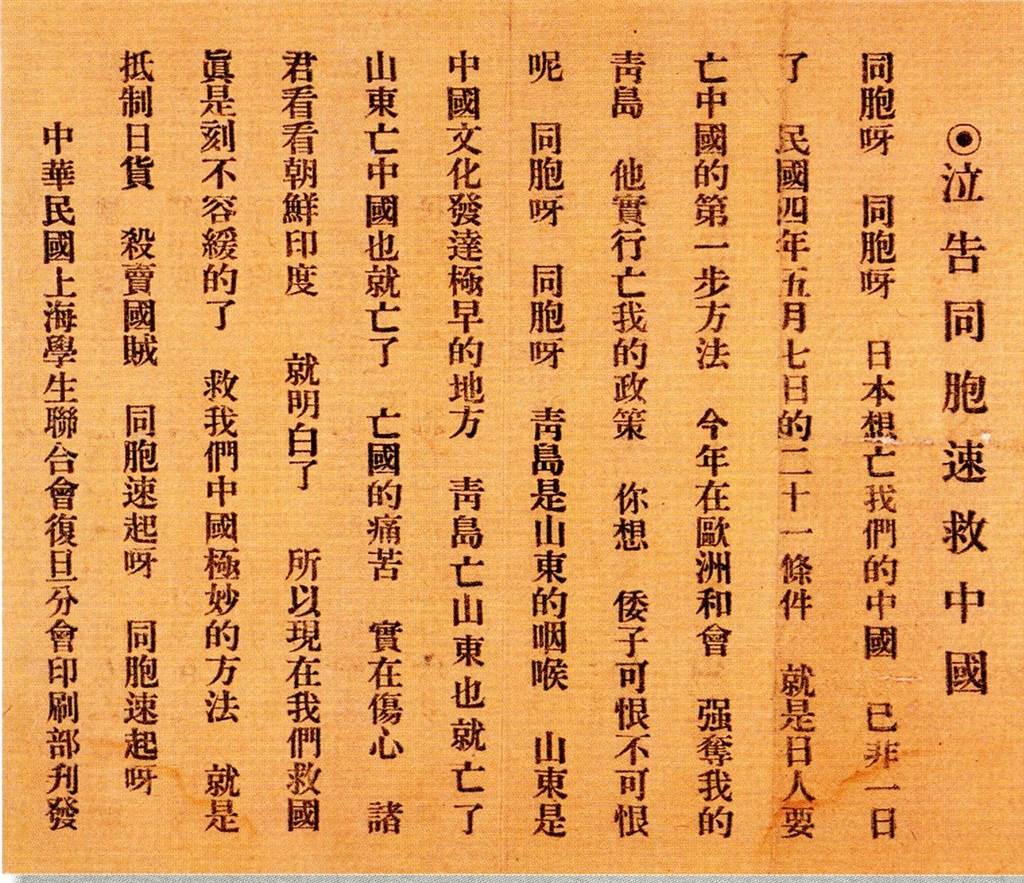 ◉泣告同胞速救中國
同胞呀　同胞呀　日本想亡我們的中國　已非一日
了　民國四年五月七日的二十一條件　就是日人要
亡中國的第一步方法　今年在歐洲和會　强奪我的
靑島　他實行亡我的政策　你想　倭子可恨不可恨
呢　同胞呀　同胞呀　靑島是山東的咽喉　山東是
中國文化發達極早的地方　靑島亡山東也就亡了
山東亡中國也就亡了　亡國的痛苦　實在傷心　諸
君看看朝鮮印度　就明白了　所以現在我們救國
眞是刻不容緩的了　救我們中國極妙的方法　就是
抵制日貨　殺賣國賊　同胞速起呀　同胞速起呀
中華民國上海學生聯合會復旦分會印刷部刋發